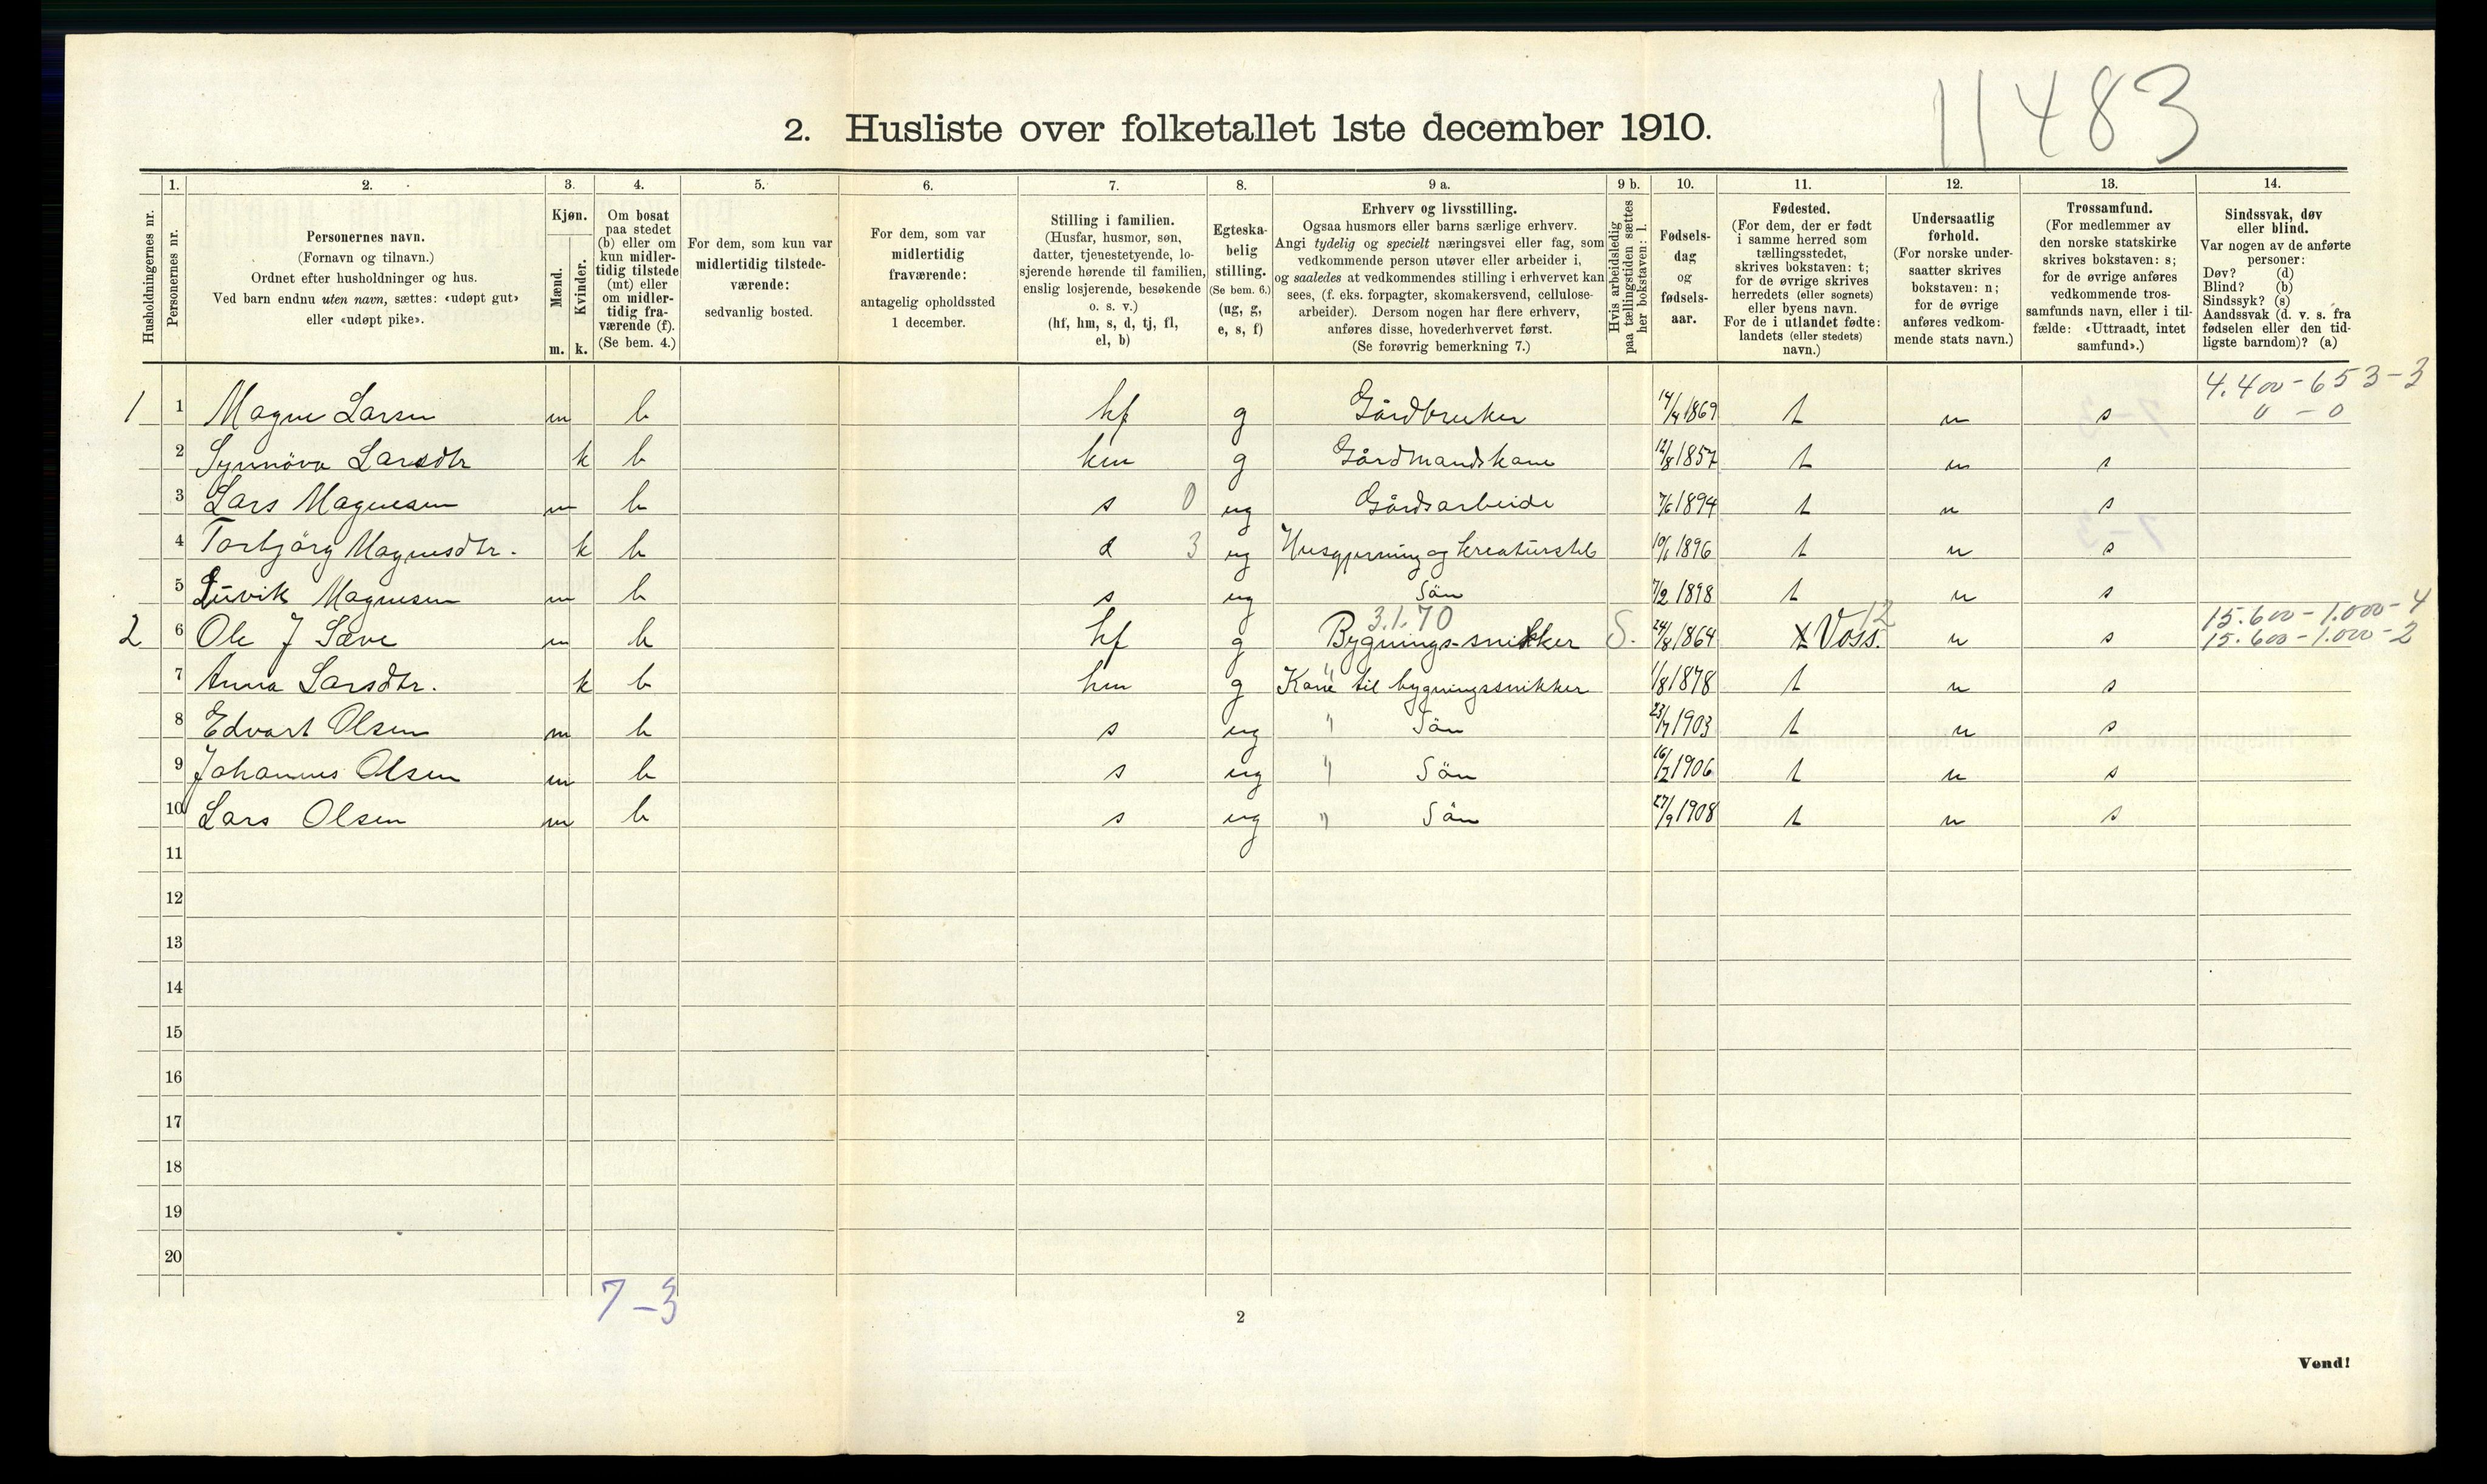 11483
2. Husliste over folketallet 1ste december 1910.
Husholdningernes nr.
1.
Personernes nr.
2.
Personernes navn.
(Fornavn og tilnavn.)
Ordnet efter husholdninger og hus.
Ved barn endnu uten navn, sættes: «udøpt gut»
eller «udøpt pike».
3.
Kjøn.
Mænd.
Kvinder.
m. k.
4.
Om bosat
paa stedet
(b) eller om
kun midler-
tidig tilstede
(mt) eller
om midler-
tidig fra-
værende (f).
(Se bem. 4.)
5.
For dem, som kun var
midlertidig tilstede-
værende:
sedvanlig bosted.
6.
For dem, som var
midlertidig
fraværende:
antagelig opholdssted
1 december.
7.
Stilling i familien.
(Husfar, husmor, søn,
datter, tjenestetyende, lo-
sjerende hørende til familien,
enslig losjerende, besøkende
o. s. v.)
(hf, hm, s, d, tj, fl,
el, b)
8.
Egteska-
belig
stilling.
(Se bem. 6.)
(ug, g,
e, s, f)
9 a.
Erhverv og livsstilling.
Ogsaa husmors eller barns særlige erhverv.
Angi tydelig og specielt næringsvei eller fag, som
vedkommende person utøver eller arbeider i,
og saaledes at vedkommendes stilling i erhvervet kan
sees, (f. eks. forpagter, skomakersvend, cellulose-
arbeider). Dersom nogen har flere erhverv,
anføres disse, hovederhvervet først.
(Se forøvrig bemerkning 7.)
9 b.
Hvis arbeidsledig
paa tællingstiden sættes
her bokstaven: l.
10.
Fødsels-
dag
og
fødsels-
aar.
11.
Fødested.
(For dem, der er født
i samme herred som
tællingsstedet,
skrives bokstaven: t;
for de øvrige skrives
herredets (eller sognets)
eller byens navn.
For de i utlandet fødte:
landets (eller stedets)
navn.)
12.
Undersaatlig
forhold.
(For norske under-
saatter skrives
bokstaven: n;
for de øvrige
anføres vedkom-
mende stats navn.)
13.
Trossamfund.
(For medlemmer av
den norske statskirke
skrives bokstaven: s;
for de øvrige anføres
vedkommende tros-
samfunds navn, eller i til-
fælde: «Uttraadt, intet
samfund».)
14.
Sindssvak, døv
eller blind.
Var nogen av de anførte
personer:
Døv? (d)
Blind? (b)
Sindssyk? (s)
Aandssvak (d. v. s. fra
fødselen eller den tid-
ligste barndom)? (a)
4.400-653-3
1 1 Magne Larsen m b hf g Gårdbruker 14/4 1869 t n s 0 - 0
2 Synnöva Larsdtr k b hm g Gårdmandskone 12/8 1857 t n s
3 Lars Magnesen m b s 0 ug Gårdsarbeide 7/6 1894 t n s
4 Torbjörg Magnesdtr. k b d 3 ug Husgjerning og kreaturstel 10/1 1896 t n s
5 Luvik Magnesen m b s ug Sön 7/2 1898 t n s
3.1.70 12 15.600-1.000-4
2 6 Ole J Sæve m b hf g Bygnings-snikker S. 24/8 1864 t Voss. n s 15.600-1.000-2
7 Anna Larsdtr. k b hm g Kone til bygningssnikker 1/8 1878 t n s
8 Edvart Olsen m b s ug " Sön 23/7 1903 t n s
9 Johannes Olsen m b s ug " Sön 16/2 1906 t n s
10 Lars Olsen m b s ug " Sön 27/9 1908 t n s
11
12
13
14
15
16
17
18
19
20
7-3
2
Vend!